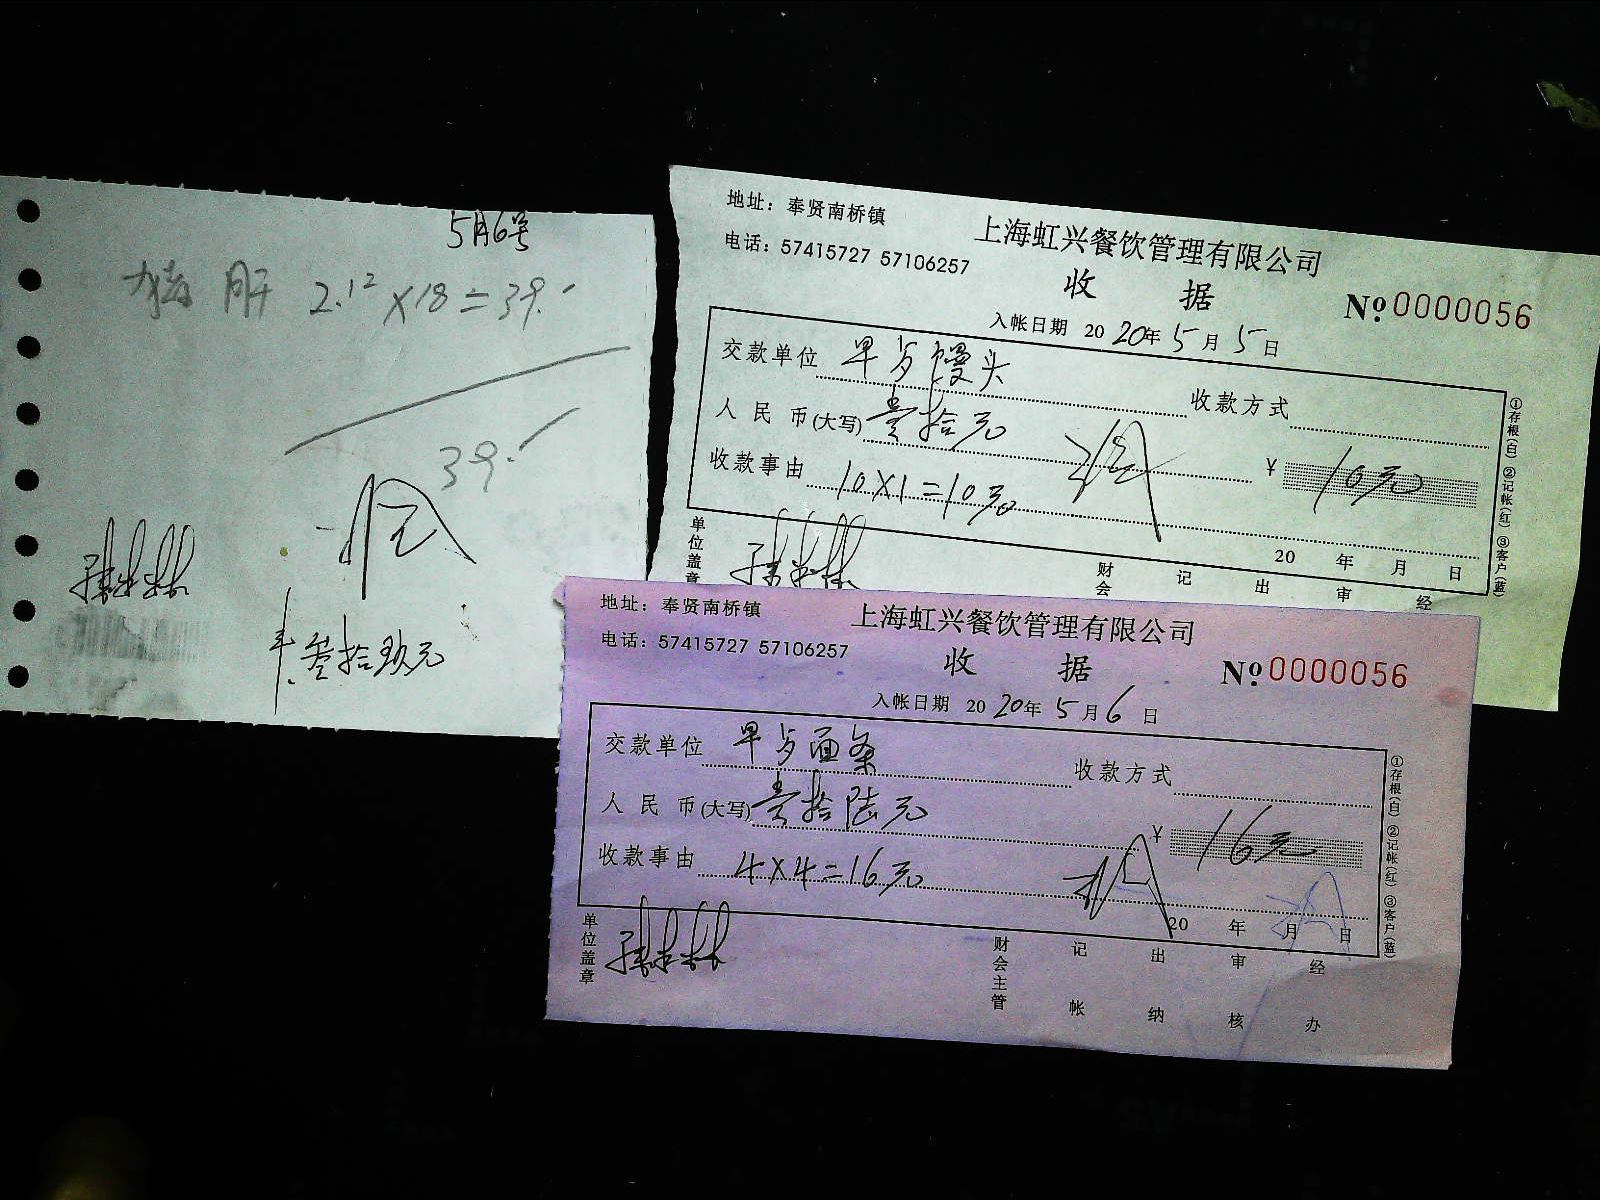 5月6号
猪肝 2.12×18=39.-
39.-
叁拾玖元
地址：奉贤南桥镇
电话：57415727 57106257
上海虹兴餐饮管理有限公司
收 据
№0000056
入帐日期 2020年5月5日
交款单位 早点馒头 收款方式
人民币(大写) 壹拾元
¥ 10元
收款事由 10×1=10元
20 年 月 日
单位盖章 财会 记 出 审 经
①存根(白) ②记帐(红) ③客户(蓝)
地址：奉贤南桥镇
电话：57415727 57106257
上海虹兴餐饮管理有限公司
收 据
№0000056
入帐日期 2020年5月6日
交款单位 早点面条 收款方式
人民币(大写) 壹拾陆元
¥ 16元
收款事由 4×4=16元
20 年 月 日
单位盖章 财会主管 记帐 出纳 审核 经办
①存根(白) ②记帐(红) ③客户(蓝)